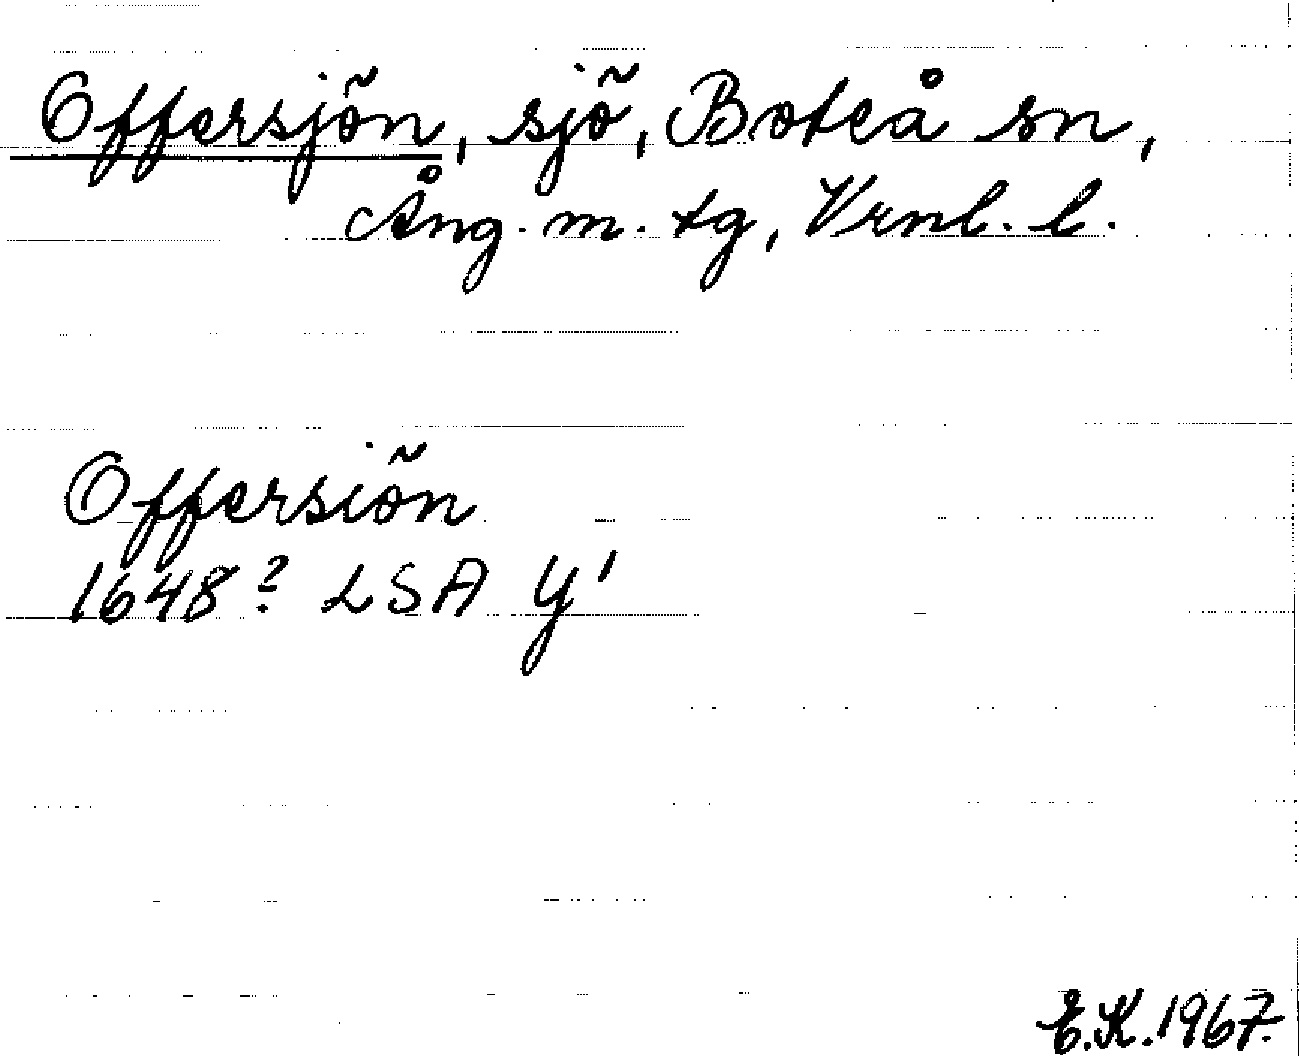 Offersjön, sjö, Boteå sn,
Ång. m. tg, Vrnl. l.
Offersiön
1648? LSA Y¹
E.K. 1967.